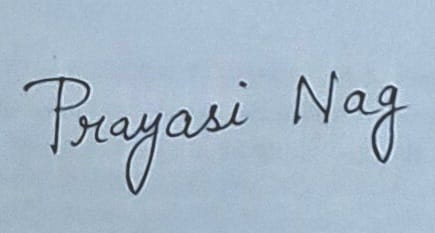 Prayasi Nag